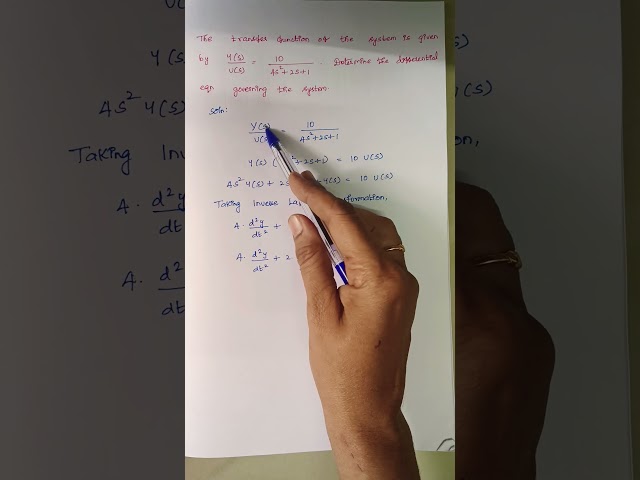 The transfer function of the system is given
by Y(s)/U(s) = 10/(4s²+2s+1). Determine the differential
eqn governing the system.
Soln:
Y(s)/U(s) = 10/(4s²+2s+1)
Y(s) ( s²+2s+1) = 10 U(s)
4s² Y(s) + 2s Y(s) = 10 U(s)
Taking Inverse
4. d²y/dt² +
4. d²y/dt² + 2